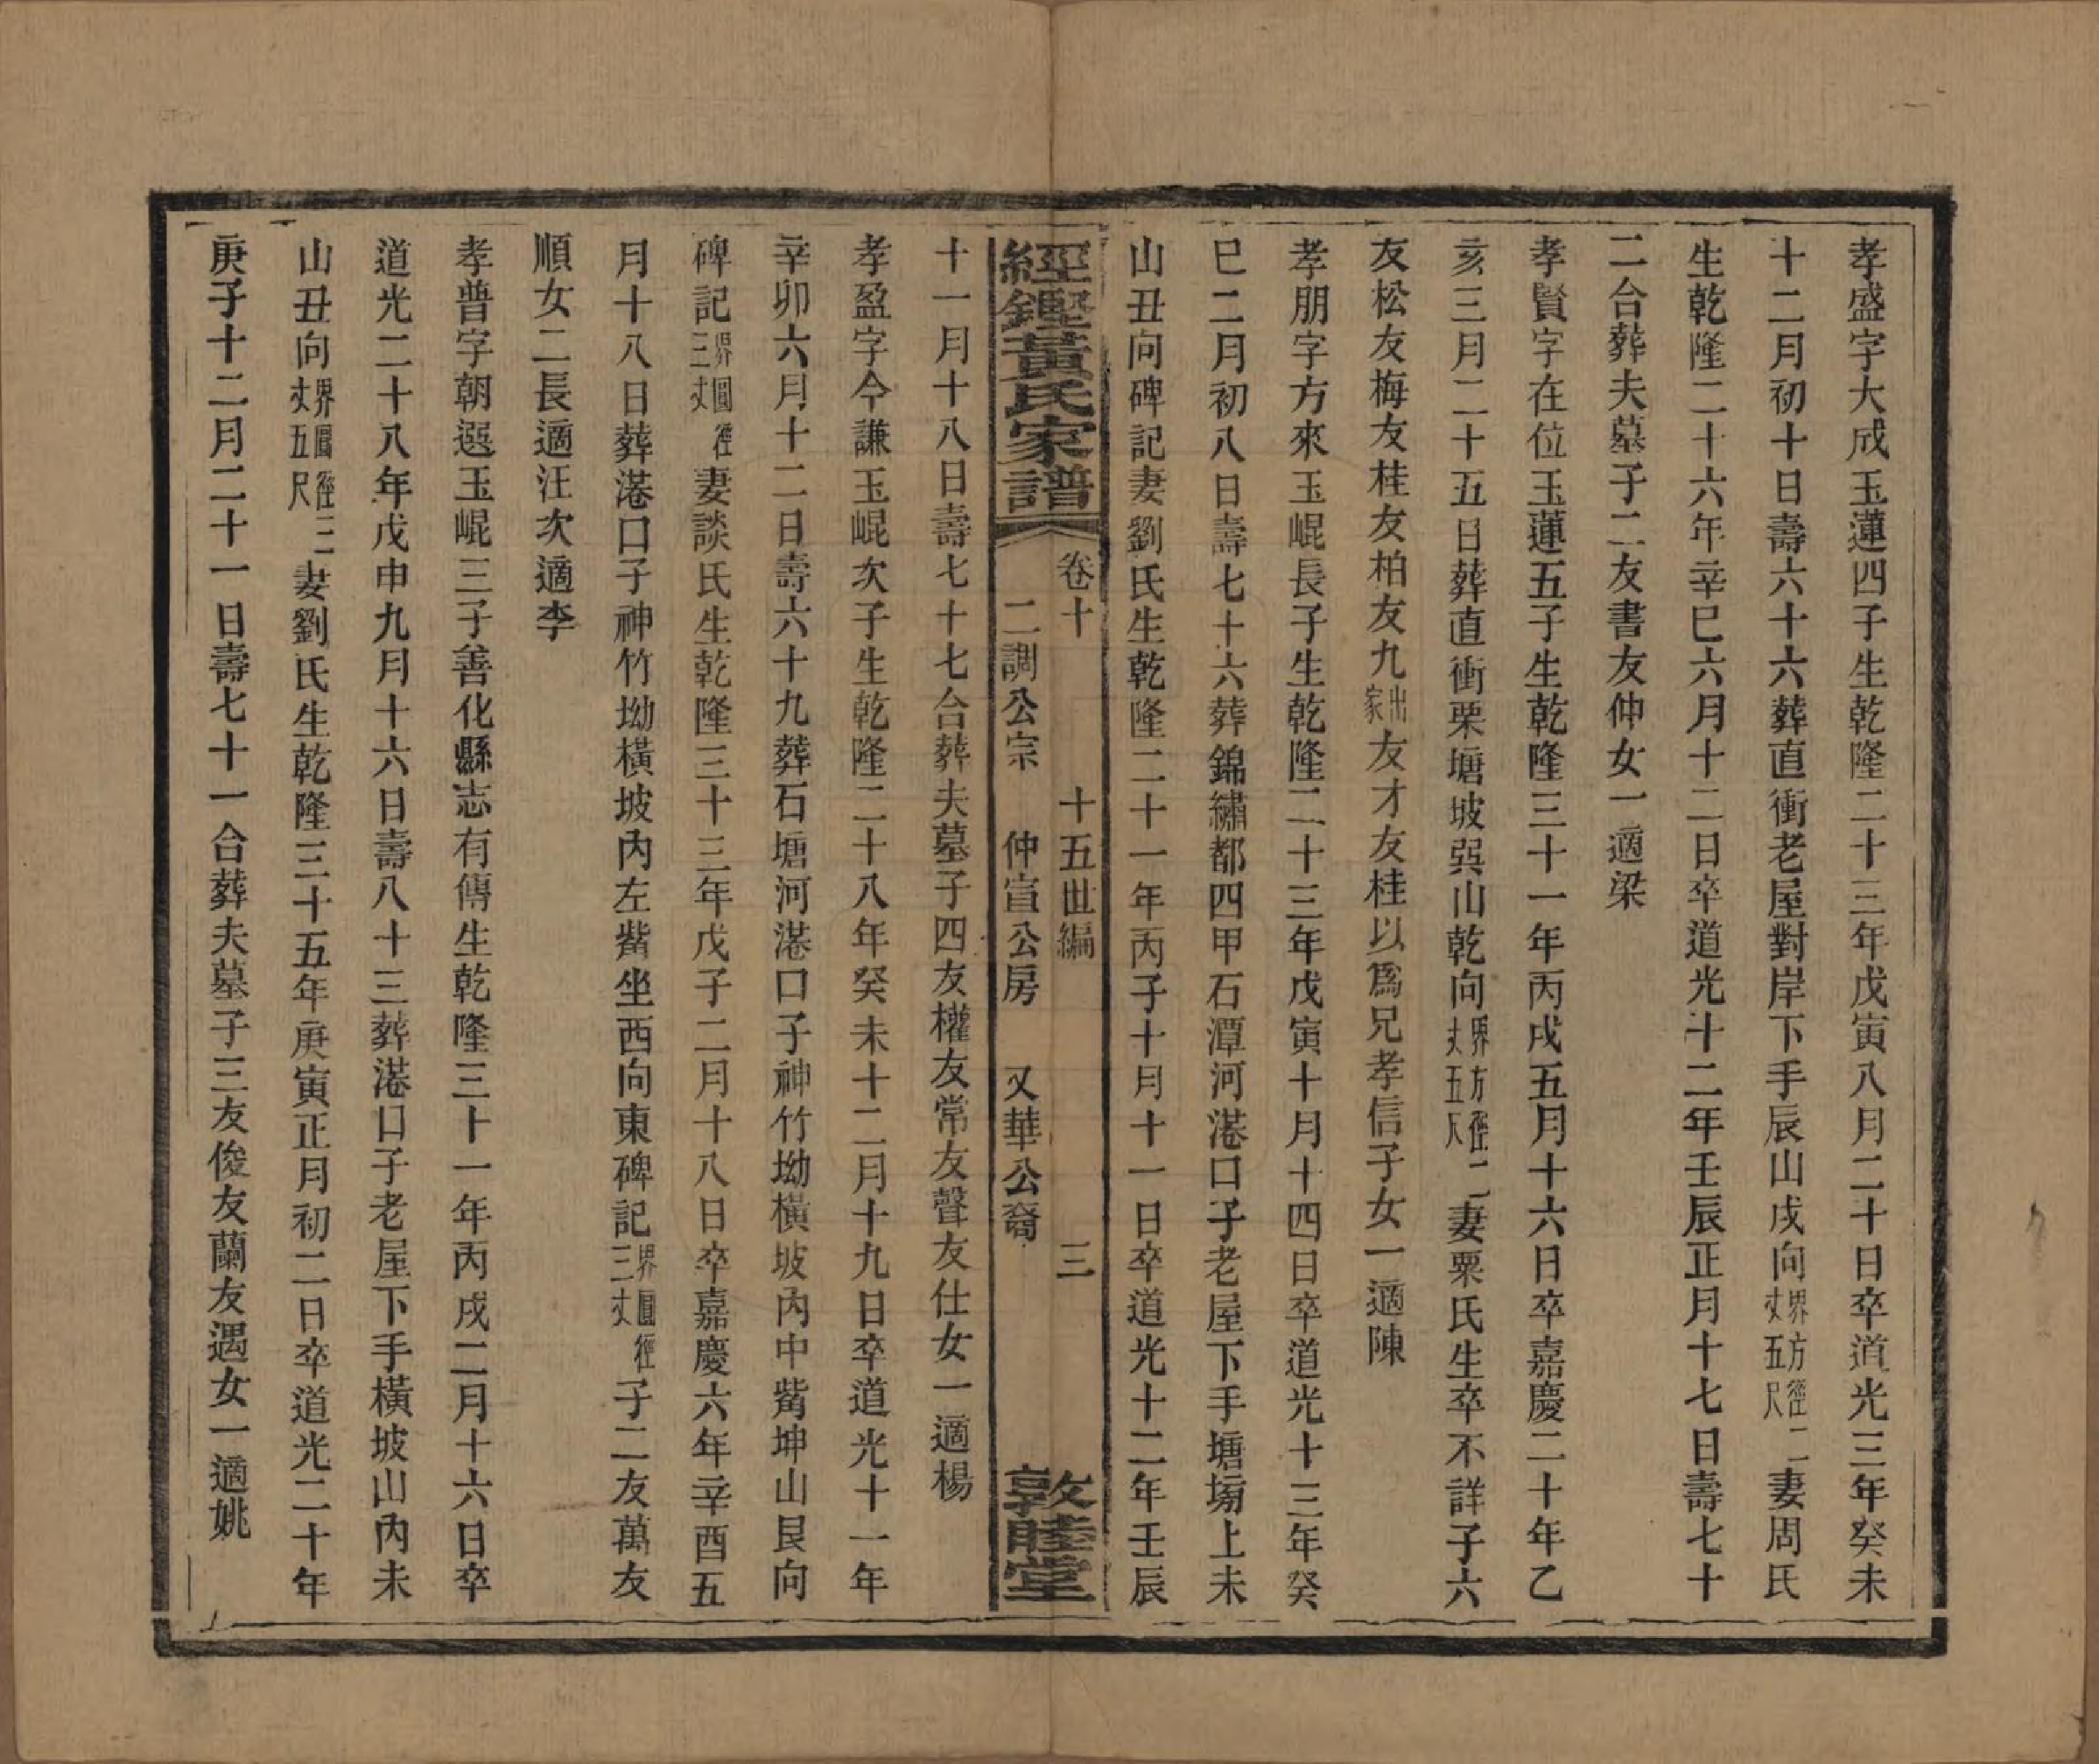 孝盛字大成玉蓮四子生乾隆二十三年戊寅八月二十日卒道光三年癸未
十二月初十日壽六十六葬直衝老屋對岸下手辰山戌向界方徑二丈五尺妻周氏
生乾隆二十六年辛巳六月十二日卒道光十二年壬辰正月十七日壽七十
二合葬夫墓子二友書友仲女一適梁
孝賢字在位玉蓮五子生乾隆三十一年丙戌五月十六日卒嘉慶二十年乙
亥三月二十五日葬直衝栗塘坡巽山乾向界方徑二丈五尺妻栗氏生卒不詳子六
友松友梅友桂友柏友九出家友才友桂以爲兄孝信子女一適陳
孝朋字方來玉崐長子生乾隆二十三年戊寅十月十四日卒道光十三年癸
巳二月初八日壽七十六葬錦繡都四甲石潭河港口子老屋下手塘塝上未
山丑向碑記妻劉氏生乾隆二十一年丙子十月十一日卒道光十二年壬辰
經鏗黃氏家譜 卷十 十五世編 三
二調公宗 仲宣公房 又華公裔 敦睦堂
十一月十八日壽七十七合葬夫墓子四友權友常友聲友仕女一適楊
孝盈字今謙玉崐次子生乾隆二十八年癸未十二月十九日卒道光十一年
辛卯六月十二日壽六十九葬石塘河港口子神竹坳橫坡內中觜坤山艮向
碑記界圓徑三丈妻談氏生乾隆三十三年戊子二月十八日卒嘉慶六年辛酉五
月十八日葬港口子神竹坳橫坡內左觜坐西向東碑記界圓徑三丈子二友萬友
順女二長適汪次適李
孝普字朝選玉崐三子善化縣志有傳生乾隆三十一年丙戌二月十六日卒
道光二十八年戊申九月十六日壽八十三葬港口子老屋下手橫坡山內未
山丑向界圓徑三丈五尺妻劉氏生乾隆三十五年庚寅正月初二日卒道光二十年
庚子十二月二十一日壽七十一合葬夫墓子三友俊友蘭友遇女一適姚